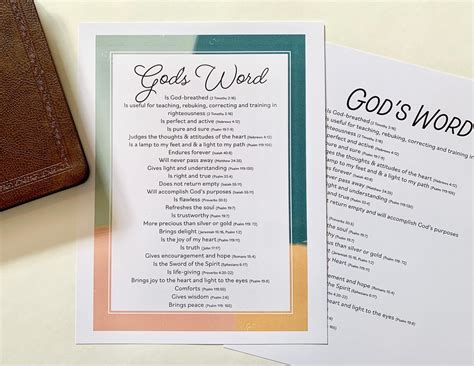 God's Word
Is God-breathed (2 Timothy 3:16)
Is useful for teaching, rebuking, correcting and training in
righteousness (2 Timothy 3:16)
Is perfect and active (Hebrews 4:12)
Is pure and sure (Psalm 19:7-8)
Judges the thoughts & attitudes of the heart (Hebrews 4:12)
Is a lamp to my feet and & a light to my path (Psalm 119:105)
Endures forever (Isaiah 40:8)
Will never pass away (Matthew 24:35)
Gives light and understanding (Psalm 119:130)
Is right and true (Psalm 33:4)
Does not return empty (Isaiah 55:11)
Will accomplish God's purposes (Isaiah 55:11)
Is flawless (Proverbs 30:5)
Refreshes the soul (Psalm 19:7)
Is trustworthy (Psalm 19:7)
More precious than silver or gold (Psalm 119:72)
Brings delight (Jeremiah 15:16, Psalm 1:2)
Is the joy of my heart (Psalm 119:111)
Is truth (John 17:17)
Gives encouragement and hope (Romans 15:4)
Is the Sword of the Spirit (Ephesians 6:17)
Is life-giving (Proverbs 4:20-22)
Brings joy to the heart and light to the eyes (Psalm 19:8)
Comforts (Psalm 119:50)
Gives wisdom (Psalm 19:7)
Brings peace (Psalm 119:165)
GOD'S WORD
Is God-breathed (2 Timothy 3:16)
Is useful for teaching, rebuking, correcting
righteousness (2 Timothy 3:16)
perfect and active
pure and sure
the thoughts & attitudes of the heart
to my feet and & a light to my path
forever
pass away
and understanding
true
return empty and will accomplish God's purposes
the soul
than silver or gold
heart
and hope
the Spirit
heart and light to the eyes